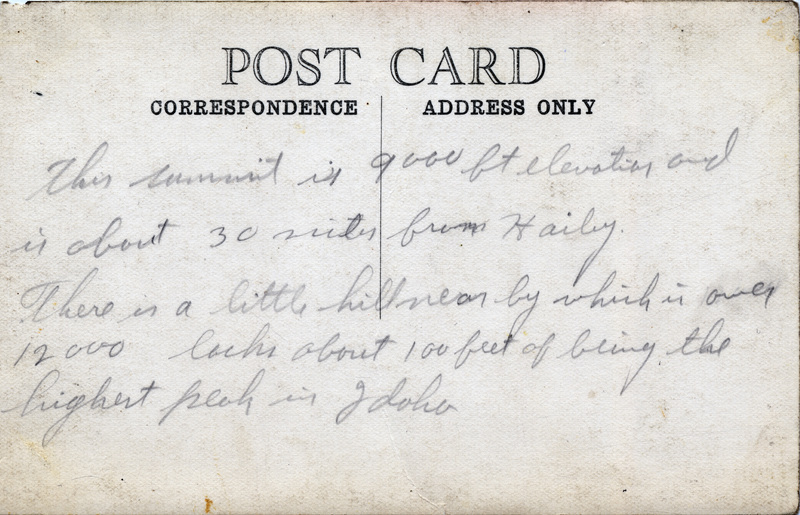 POST CARD
CORRESPONDENCE ADDRESS ONLY
This summit is 9000 ft elevation and
is about 30 miles from Hailey.
There is a little hill near by which is over
12000 lacks about 100 feet of being the
highest peak in Idaho